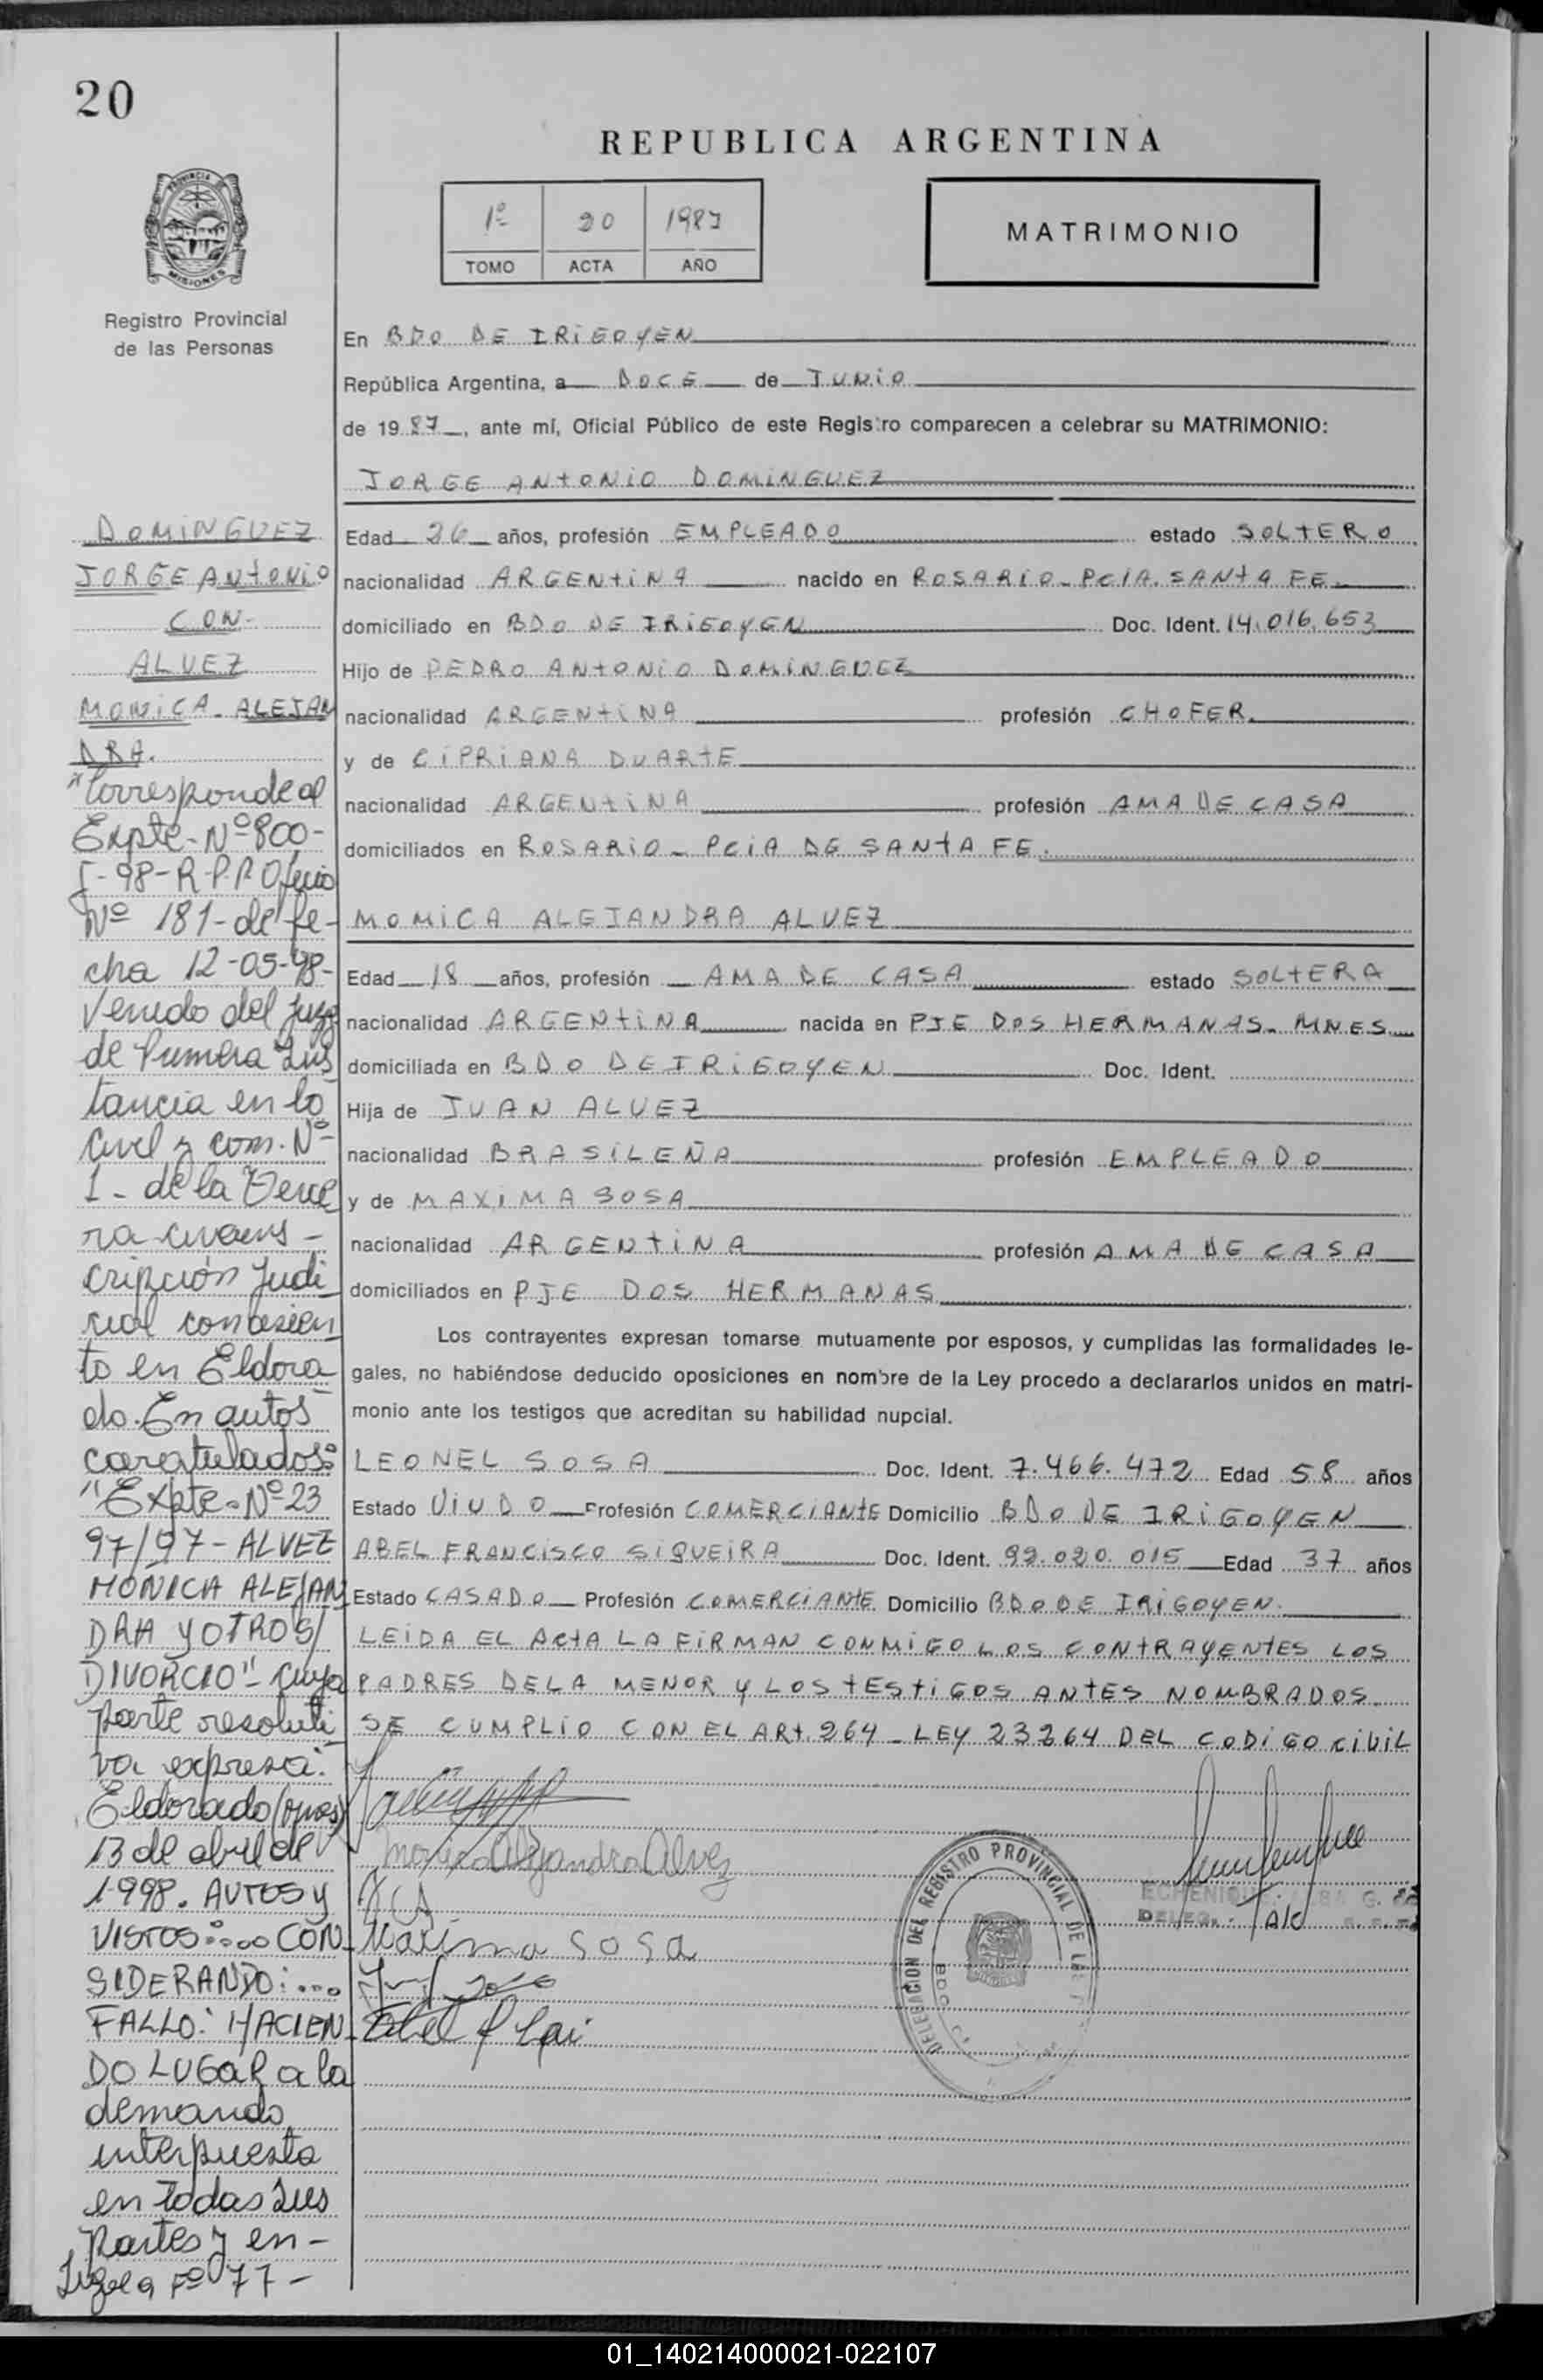 20
REPUBLICA ARGENTINA
1º 20 1987
TOMO ACTA AÑO
MATRIMONIO
PROVINCIA DE MISIONES
Registro Provincial
de las Personas
En BDO DE IRIGOYEN
República Argentina, a DOCE de JUNIO
de 1987, ante mí, Oficial Público de este Registro comparecen a celebrar su MATRIMONIO:
JORGE ANTONIO DOMINGUEZ
Edad 26 años, profesión EMPLEADO estado SOLTERO
nacionalidad ARGENTINA nacido en ROSARIO - PCIA. SANTA FE.
domiciliado en BDO DE IRIGOYEN Doc. Ident. 14.016.653
Hijo de PEDRO ANTONIO DOMINGUEZ
nacionalidad ARGENTINA profesión CHOFER.
y de CIPRIANA DUARTE
nacionalidad ARGENTINA profesión AMA DE CASA
domiciliados en ROSARIO - PCIA DE SANTA FE.
MONICA ALEJANDRA ALVEZ
Edad 18 años, profesión AMA DE CASA estado SOLTERA
nacionalidad ARGENTINA nacida en PJE DOS HERMANAS - MNES
domiciliada en BDO DE IRIGOYEN Doc. Ident.
Hija de JUAN ALVEZ
nacionalidad BRASILEÑA profesión EMPLEADO
y de MAXIMA SOSA
nacionalidad ARGENTINA profesión AMA DE CASA
domiciliados en PJE DOS HERMANAS
Los contrayentes expresan tomarse mutuamente por esposos, y cumplidas las formalidades le-
gales, no habiéndose deducido oposiciones en nombre de la Ley procedo a declararlos unidos en matri-
monio ante los testigos que acreditan su habilidad nupcial.
LEONEL SOSA Doc. Ident. 7.466.472 Edad 58 años
Estado VIUDO Profesión COMERCIANTE Domicilio BDO DE IRIGOYEN
ABEL FRANCISCO SIQUEIRA Doc. Ident. 92.020.015 Edad 37 años
Estado CASADO Profesión COMERCIANTE Domicilio BDO DE IRIGOYEN.
LEIDA EL ACTA LA FIRMAN CONMIGO LOS CONTRAYENTES LOS
PADRES DE LA MENOR Y LOS TESTIGOS ANTES NOMBRADOS
SE CUMPLIO CON EL ART. 264 - LEY 23264 DEL CODIGO CIVIL
Monica Alejandra Alvez
Maxima Sosa
DELEGACION DEL REGISTRO PROVINCIAL DE LAS
DOMINGUEZ
JORGE ANTONIO
CON-
ALVEZ
MONICA - ALEJAN
DRA.
*Corresponde al
Expte-Nº800-
J-98-R.P.P Oficio
Nº 181-de fe-
cha 12-05-98-
Venido del Juzg
de Primera Ins
tancia en lo
Civil y com. Nº-
1- de la Terce
ra circuns-
cripción Judi
cial con asien
to en Eldora
do. En autos
caratulados:
"Expte-Nº 23
97/97-ALVEZ
MONICA ALEJAN
DRA Y OTROS/
DIVORCIO" cuya
parte resoluti
va expresa:
Eldorado (Mnes)
13 de abril de
1998. AUTOS Y
VISTOS:... CON
SIDERANDO:...
FALLO: HACIEN
DO LUGAR a la
demanda
interpuesta
en todas sus
partes y en-
Sigue a Fº 77-
01_140214000021-022107